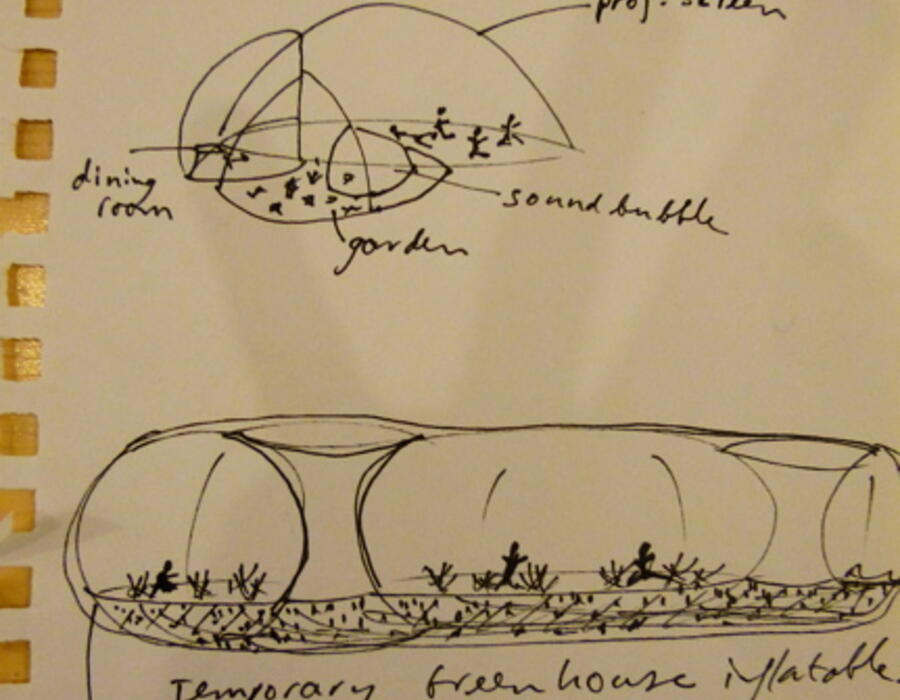 proj. screen
dining
room
sound bubble
garden
Temporary Greenhouse inflatable